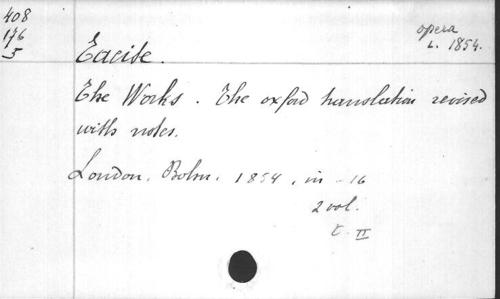 408
176
5
opera
L. 1854.
Tacite.
The Works. The oxford translation revised
with notes.
London, Bohn, 1854, in-16
2 vol.
t. II